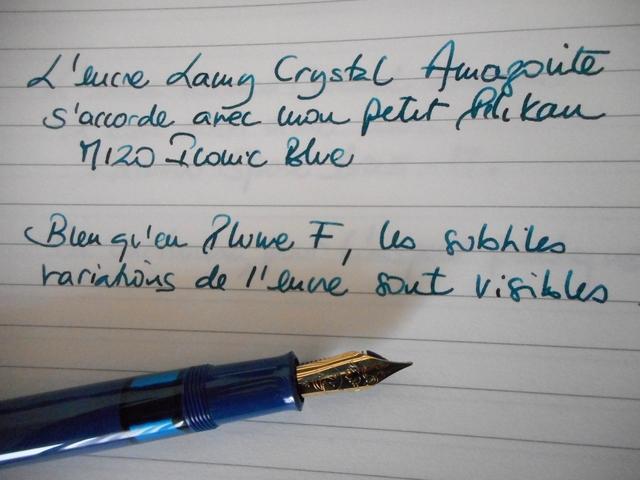 L'encre Lamy Crystal Amazonite
s'accorde avec mon petit Pélikan
M120 Iconic Blue
Bien qu'en Plume F, les subtiles
variations de l'encre sont visibles